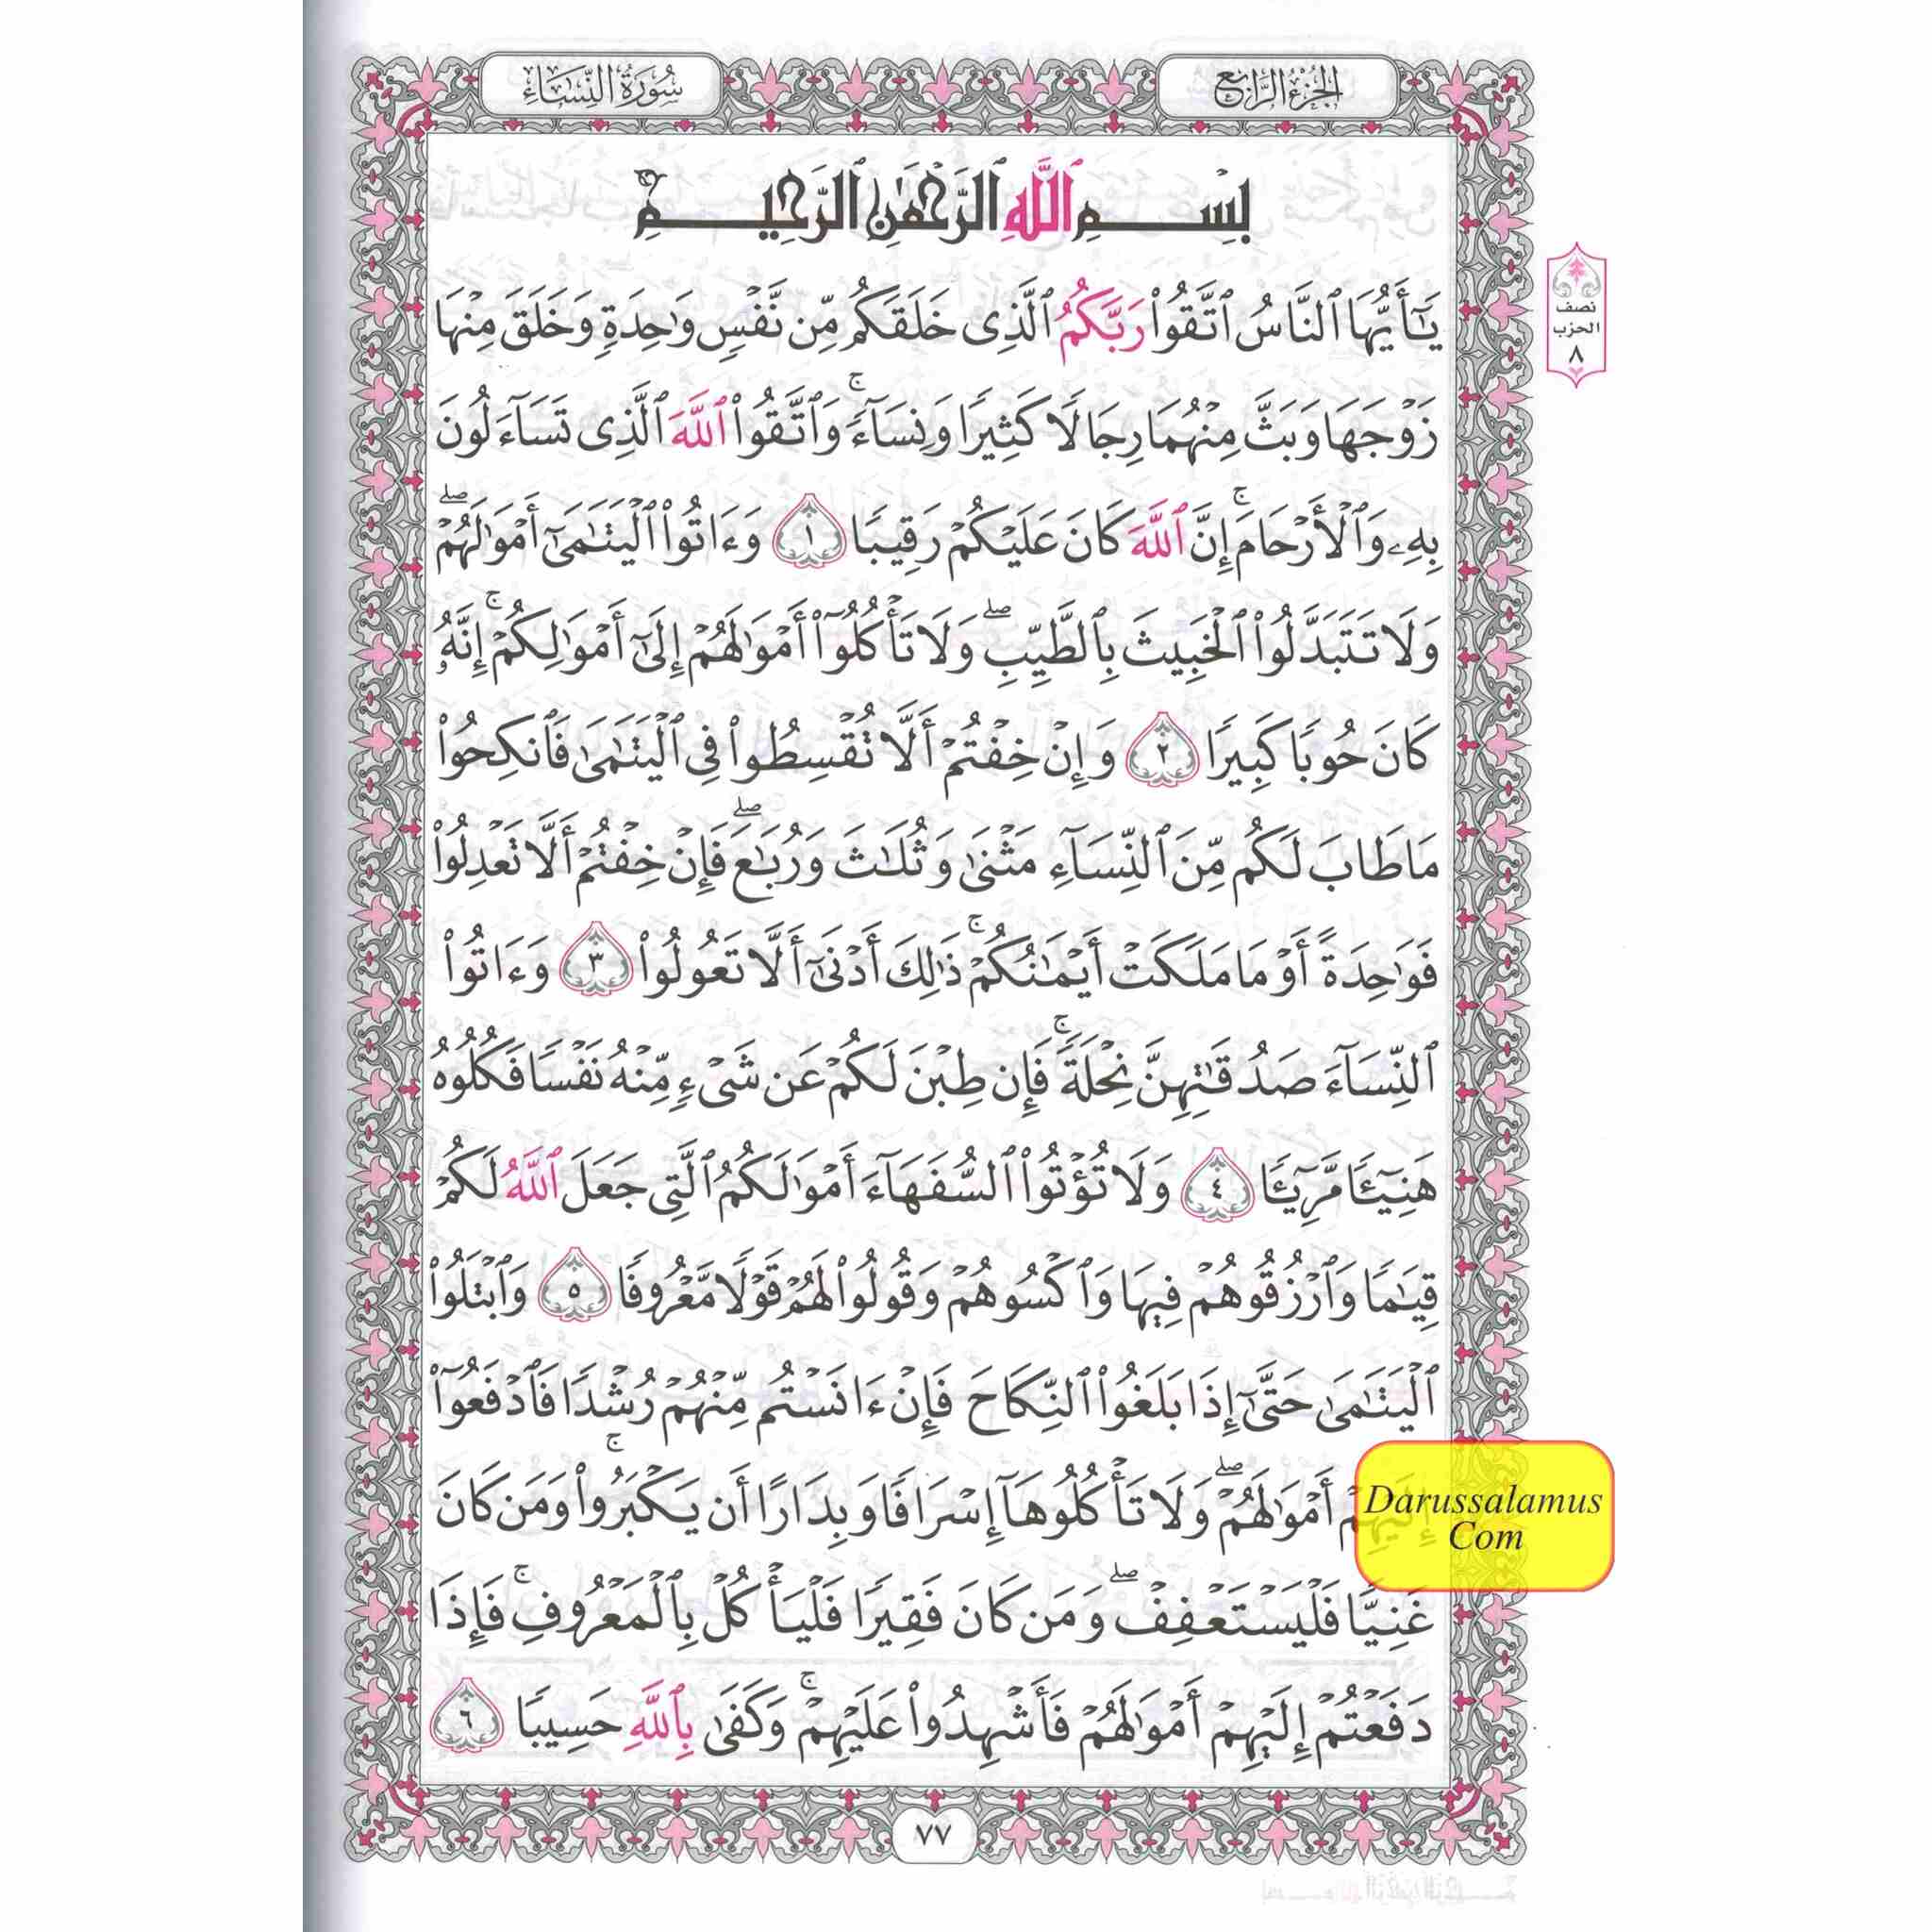 الجزء الرابع
سورة النساء
بِسْمِ ٱللَّهِ ٱلرَّحْمَٰنِ ٱلرَّحِيمِ
يَٰٓأَيُّهَا ٱلنَّاسُ ٱتَّقُوا۟ رَبَّكُمُ ٱلَّذِى خَلَقَكُم مِّن نَّفْسٍ وَٰحِدَةٍ وَخَلَقَ مِنْهَا
زَوْجَهَا وَبَثَّ مِنْهُمَا رِجَالًا كَثِيرًا وَنِسَآءً ۚ وَٱتَّقُوا۟ ٱللَّهَ ٱلَّذِى تَسَآءَلُونَ
بِهِۦ وَٱلْأَرْحَامَ ۚ إِنَّ ٱللَّهَ كَانَ عَلَيْكُمْ رَقِيبًا ١ وَءَاتُوا۟ ٱلْيَتَٰمَىٰٓ أَمْوَٰلَهُمْ ۖ
وَلَا تَتَبَدَّلُوا۟ ٱلْخَبِيثَ بِٱلطَّيِّبِ ۖ وَلَا تَأْكُلُوٓا۟ أَمْوَٰلَهُمْ إِلَىٰٓ أَمْوَٰلِكُمْ ۚ إِنَّهُۥ
كَانَ حُوبًا كَبِيرًا ٢ وَإِنْ خِفْتُمْ أَلَّا تُقْسِطُوا۟ فِى ٱلْيَتَٰمَىٰ فَٱنكِحُوا۟
مَا طَابَ لَكُم مِّنَ ٱلنِّسَآءِ مَثْنَىٰ وَثُلَٰثَ وَرُبَٰعَ ۖ فَإِنْ خِفْتُمْ أَلَّا تَعْدِلُوا۟
فَوَٰحِدَةً أَوْ مَا مَلَكَتْ أَيْمَٰنُكُمْ ۚ ذَٰلِكَ أَدْنَىٰٓ أَلَّا تَعُولُوا۟ ٣ وَءَاتُوا۟
ٱلنِّسَآءَ صَدُقَٰتِهِنَّ نِحْلَةً ۚ فَإِن طِبْنَ لَكُمْ عَن شَىْءٍ مِّنْهُ نَفْسًا فَكُلُوهُ
هَنِيٓـًٔا مَّرِيٓـًٔا ٤ وَلَا تُؤْتُوا۟ ٱلسُّفَهَآءَ أَمْوَٰلَكُمُ ٱلَّتِى جَعَلَ ٱللَّهُ لَكُمْ
قِيَٰمًا وَٱرْزُقُوهُمْ فِيهَا وَٱكْسُوهُمْ وَقُولُوا۟ لَهُمْ قَوْلًا مَّعْرُوفًا ٥ وَٱبْتَلُوا۟
ٱلْيَتَٰمَىٰ حَتَّىٰٓ إِذَا بَلَغُوا۟ ٱلنِّكَاحَ فَإِنْ ءَانَسْتُم مِّنْهُمْ رُشْدًا فَٱدْفَعُوٓا۟
إِلَيْهِمْ أَمْوَٰلَهُمْ ۖ وَلَا تَأْكُلُوهَآ إِسْرَافًا وَبِدَارًا أَن يَكْبَرُوا۟ ۚ وَمَن كَانَ
غَنِيًّا فَلْيَسْتَعْفِفْ ۖ وَمَن كَانَ فَقِيرًا فَلْيَأْكُلْ بِٱلْمَعْرُوفِ ۚ فَإِذَا
دَفَعْتُمْ إِلَيْهِمْ أَمْوَٰلَهُمْ فَأَشْهِدُوا۟ عَلَيْهِمْ ۚ وَكَفَىٰ بِٱللَّهِ حَسِيبًا ٦
نصف
الحزب
٨
Darussalamus
Com
٧٧